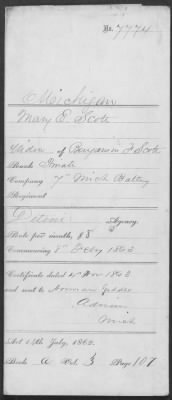 No. 7774
Michigan
Mary E Scott
Widow of Benjamin F Scott
Rank Private
Company 7" Mich Battery
Regiment
Detroit Agency.
Rate per month, $8
Commencing 8" Feby 1863
Certificate dated Nov 1863
and sent to Norman Geddes
Adrian
Mich
Act 14th July, 1862.
Book A Vol. 3 Page 107